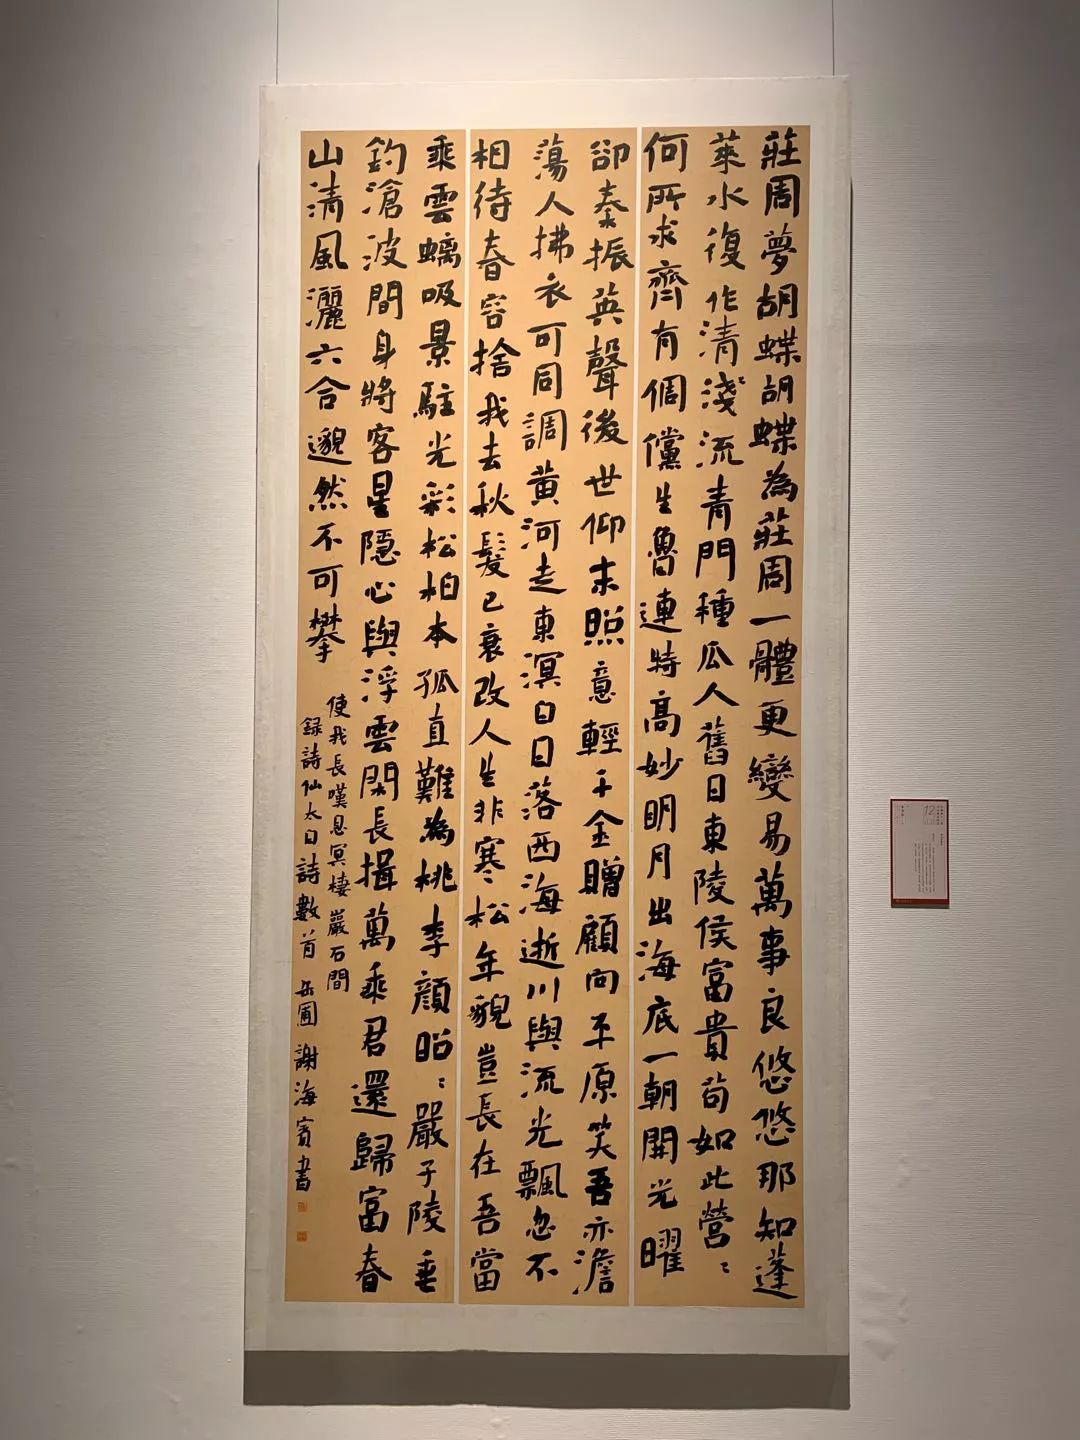 莊周夢胡蝶胡蝶為莊周一體更變易萬事良悠悠那知蓬
萊水復作清淺流青門種瓜人舊日東陵侯富貴苟如此營〻
何所求齊有倜儻生魯連特高妙明月出海底一朝開光曜
卻秦振英聲後世仰末照意輕千金贈顧向平原笑吾亦澹
蕩人拂衣可同調黃河走東溟白日落西海逝川與流光飄忽不
相待春容捨我去秋髮已衰改人生非寒松年貌豈長在吾當
乘雲螭吸景駐光彩松柏本孤直難為桃李顏昭〻嚴子陵垂
釣滄波間身將客星隱心與浮雲閑長揖萬乘君還歸富春
山清風灑六合邈然不可攀
使我長嘆息冥棲巖石間
録詩仙太白詩數首 岳圃 謝海賓書
12